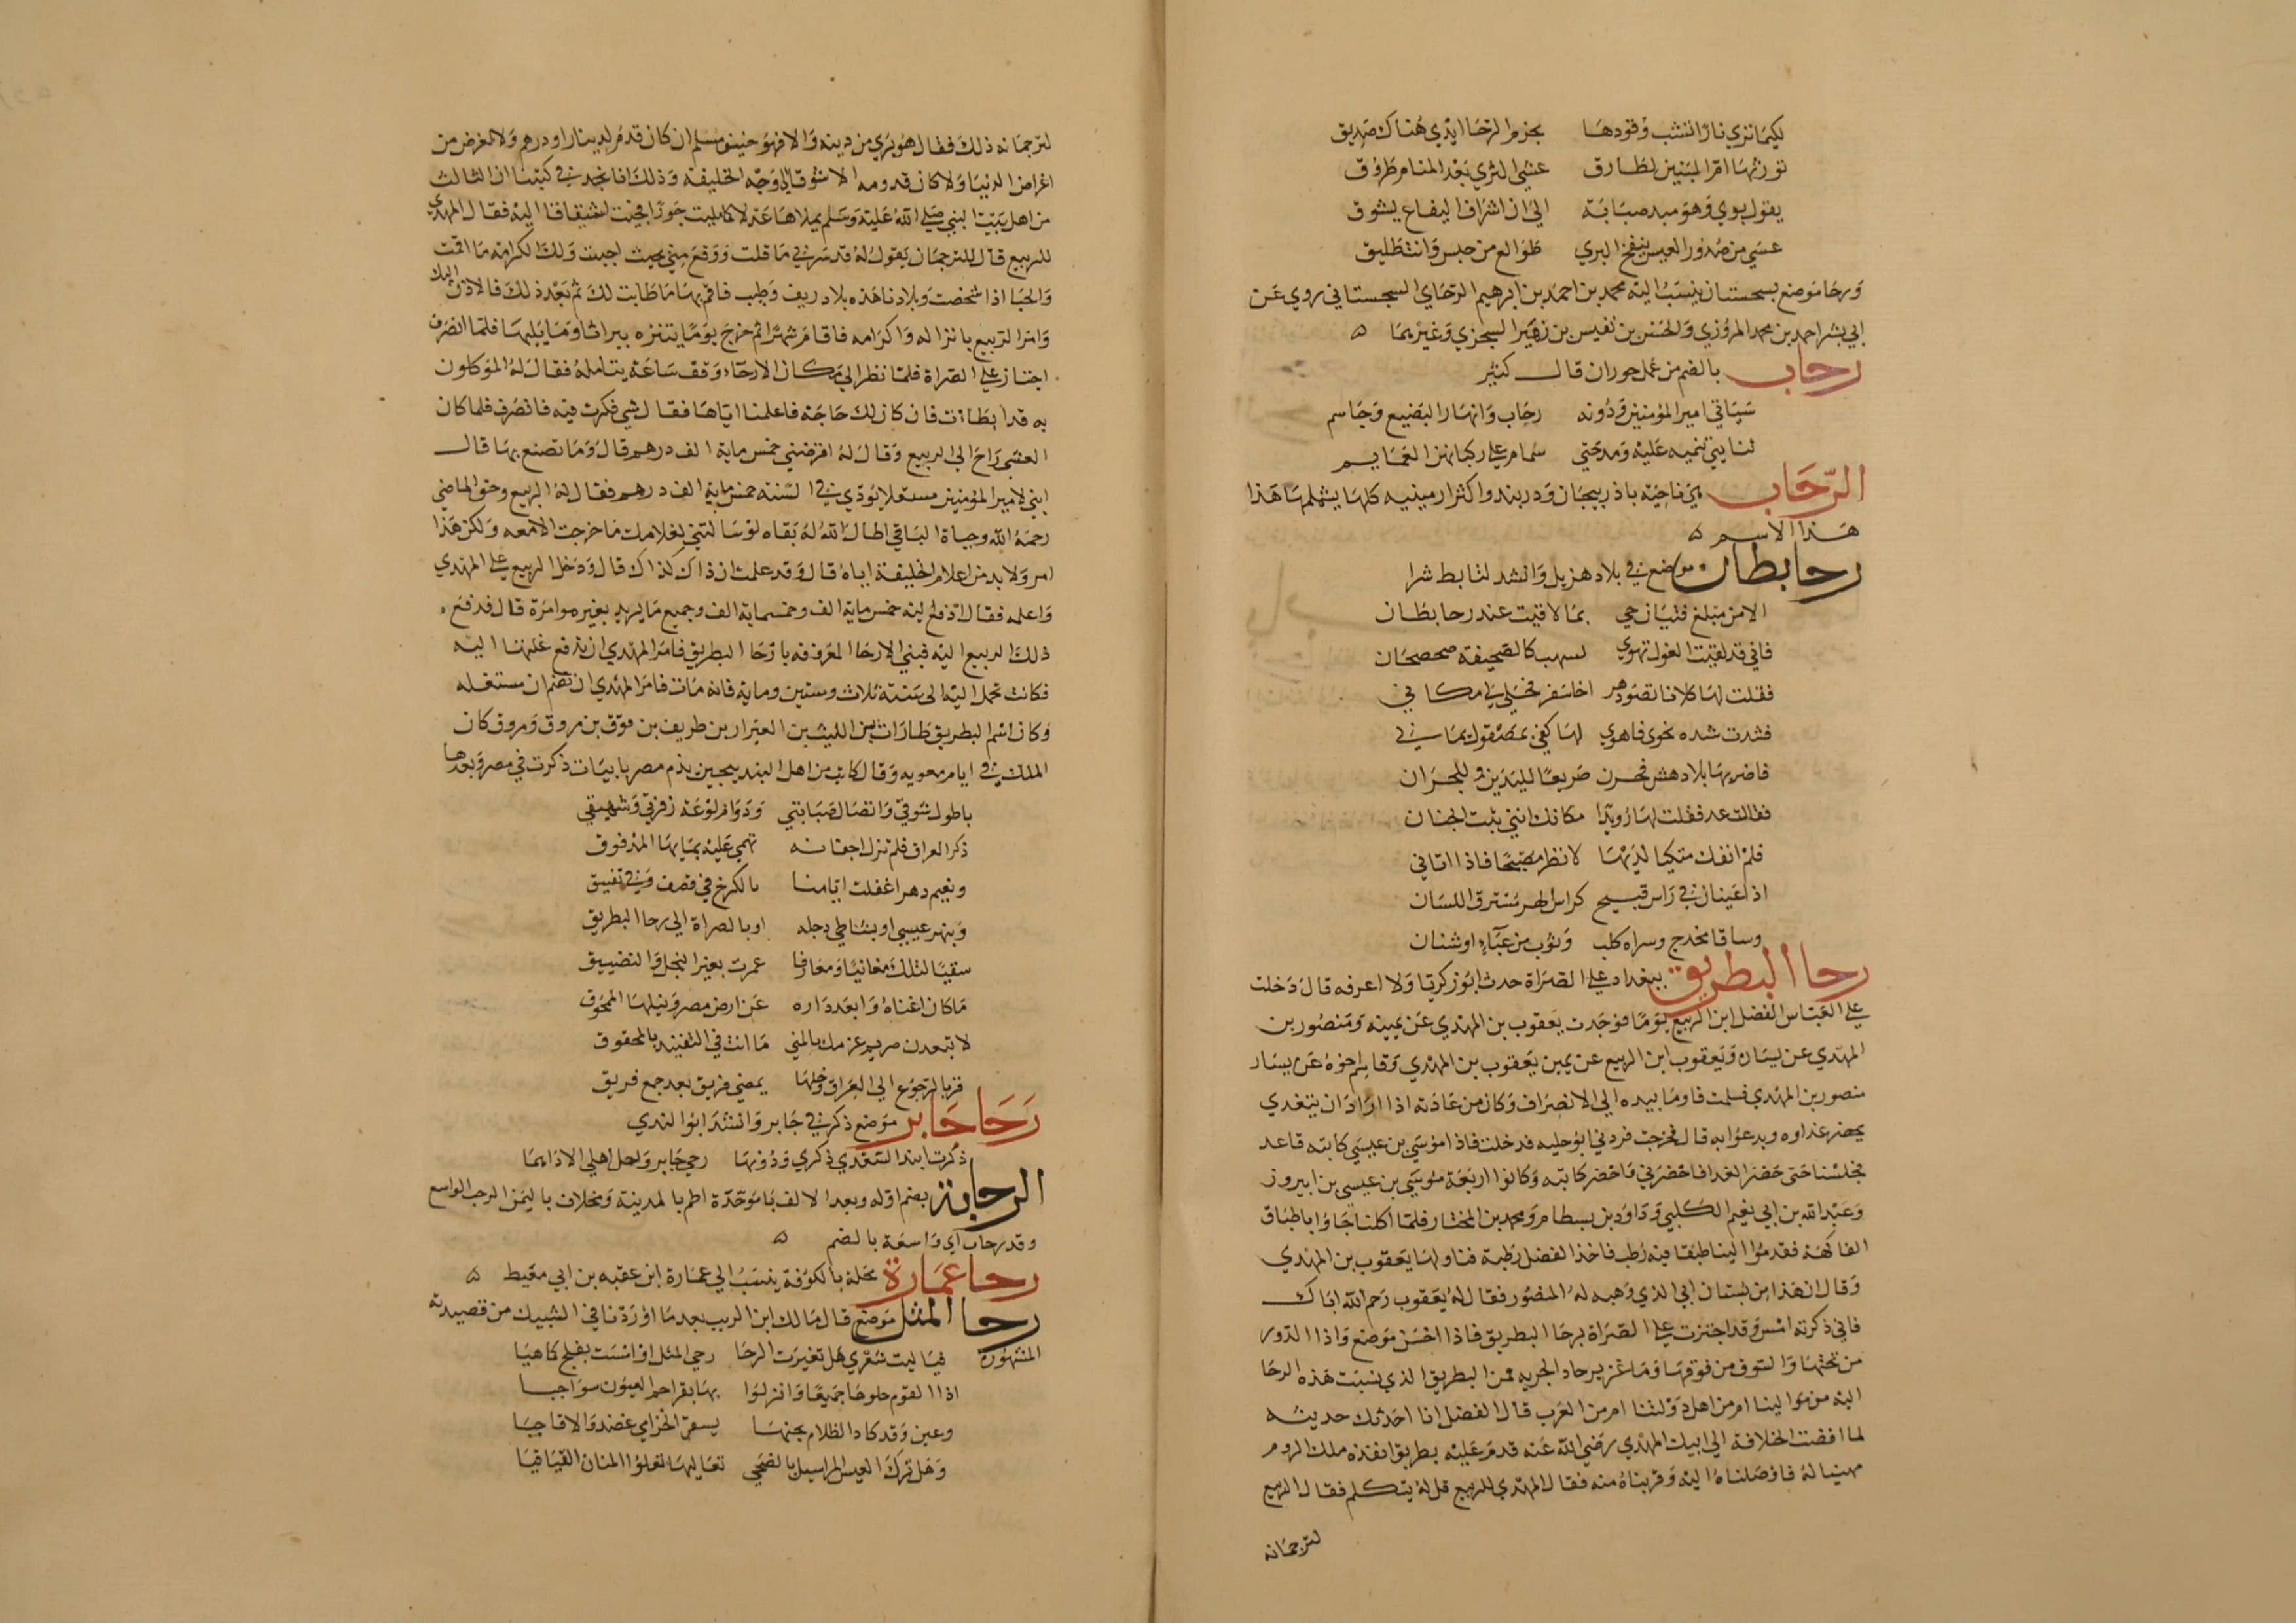 لكيما نري نارا انشب وقودها بحزم الرحا ايدي هناك صديق
تورثها ام البنين لطارق عشي الثري بعد المنام طروق
يقول بوي وهو مبد صبابة الي ان اشراف اليفاع يشوق
عسي من صدور العيس ينفخ البري طوالع من حبس وانت طليق
ورحا موضع بسجستان ينسب اليه محمد بن احمد بن ابرهيم الرحاي السجستاني روي عن
ابي بشر احمد بن محمد المروزي والحسن بن نفيس بن زهير السجزي وغيرهما ه
رحاب بالضم من عمل حوران قال كثير
سياتي امير المومنين ودونه رحاب وانهار البضيع وجاسم
ثنا يتي تنميه عليه ومدحتي سمام علي ركبانهن الغمايم
الرحاب هي ناحية باذربيجان ودربند واكثر ارمينيه كلها يشملها هذا
هذا الاسم ه
رحا بطان موضع في بلاد هزيل وانشد لتابط شرا
الا من مبلغ فتيان حي بما لاقيت عند رحا بطان
فاني قد لقيت الغول تهوي بسهب كالصحيفة صحصحان
فقلت لها كلانا نضو دهر اخا سفر فخلي لي مكاني
فشدت شده نحوي فاهوي لها كفي بمصقول يماني
فاضربها بلا دهش فخرن صريعا لليدين وللجران
فقالت عد فقلت لها رويدا مكانك انني ثبت الجنان
فلم انفك متكيا لديها لانظر مصبحا فاذا اتاني
اذا عينان في راس قبيح كراس الهر مسترق اللسان
وساقا مخدج وسراه كلب وثوب من عبآء او شنان
رحا البطريق ببغداد علي الصراة حدث ابو زكريا ولا اعرفه قال دخلت
علي العباس الفضل ابن الربيع يوما فوجدت يعقوب بن المهدي عن يمينه ومنصور بن
المهدي عن يساره ويعقوب ابن الربيع عن يمين يعقوب بن المهدي وقاسم اخوه عن يسار
منصور بن المهدي فسلمت فاوما بيده الي الانصراف وكان من عادته اذا اراد ان يتغدي
يحضر غداوه ويدعوا به قال فخرجت فردني ابو حليه فدخلت فاذا موسي بن عيسي كاتبه قاعد
فجلسنا حتي حضر الغدا فاحضرني فاحضر كاتبه وكانوا اربعة موسي بن عيسي بن ابيروز
وعبد الله بن ابي نعيم الكلبي وداود بن بسطام ومحمد بن المختار فلما اكلنا جاوا باطباق
الفاكهة فقدموا الينا طبقا فيه رطب فاخذ الفضل رطبة فناولها يعقوب بن المهدي
وقال ان هذا من بستان ابي الذي وهبه له المنصور فقال له يعقوب رحم الله اباك
فاني ذكرته امس وقد اجتزت علي الصراة برحا البطريق فاذا احسن موضع واذا الدور
من تحتها والسوق من فوقها وما غزير حاد الجريه ممن البطريق الذي نسبت هذه الرحا
اليه من موالينا ام من اهل دولتنا ام من العرب قال الفضل انا احدثك حديثه
لما افضت الخلافة الي ابيك المهدي رضي الله عنه قدم عليه بطريق انفذه ملك الروم
مهنيا له فاوصلناه اليه وقربناه منه فقال المهدي للربيع قل له يتكلم فقال الربيع
لترجمانه
لترجمانه ذلك فقال هو بري من دينه والا فهو حنيف مسلم ان كان قدم لدينار او درهم ولا لغرض من
اغراض الدنيا ولا كان قدومه الا شوقا الي وجه الخليفة وذلك انا نجد في كتبنا ان الثالث
من اهل بيت النبي صلي الله عليه وسلم يملاها عدلا كما مليت جورا فجيت اشتياقا اليه فقال المهدي
للربيع قال للترجمان يقول له قد سرني ما قلت ووقع مني بحيث احببت ولك الكرامة ما اقمت
والحبا اذا شخصت وبلادنا هذه بلاد ريف وطيب فاقم بها ما طابت لك ثم بعد ذلك فالاذن اليك
وامر الربيع بانزاله واكرامه فاقام شهرا ثم خرج يوما يتنزه ببراثا وما يليها فلما انصرف
اجتاز علي الصراة فلما نظر الي مكان الارحاء وقف ساعة يتامله فقال له الموكلون
به قد ابطات فان كان لك حاجة فاعلمنا اياها فقال شي فكرت فيه فانصرف فلما كان
العشي راح الي الربيع وقال له اقرضني خمس ماية الف درهم قال وما تصنع بها قال
ابني لامير المومنين مستغلا يودي في السنة خمس ماية الف درهم فقال له الربيع وحق الماضي
رحمه الله وحياة الباقي اطال الله له بقاه لو سالتني لغلامك ما خرجت الا معه ولكن هذا
امر ولا بد من اعلام الخليفة اياه قال وقد علمت ان ذاك كذاك قال ودخل الربيع علي المهدي
واعلمه فقال ادفع اليه خمس ماية الف وخمسماية الف وجميع ما يريد بغير موامرة قال فدفع
ذلك الربيع اليه فبني الارحا المعروفه بارحا البطريق فامر المهدي ان يدفع غلتها اليه
فكانت تحمل اليه الي سنة ثلاث وستين وماية فانه مات فامر المهدي ان تضم ان مستغله
وكان اسم البطريق طارات بن الليث بن العيزار بن طريف بن فوق بن مروق ومروق كان
الملك في ايام معويه وقال كاتب من اهل البندنيجين يذم مصر بابيات ذكرت في مصر وبعدها
ياطول شوقي واتصال صبابتي ودوام لوعة زفرتي وشهيقي
ذكر العراق فلم تزل اجفانه تهمي عليه بمايها المدفوق
ونعيم دهر اغفلت ايامنا بالكرخ في قصف وفي تفنيق
وبنهر عيسي او بشاطي دجله او بالصراة الي رحا البطريق
سقيا لتلك مغانيا ومعارفا عمرت بغير البخل والتضييق
ما كان اغناه وابعد داره عن ارض مصر ونيلها الممحوق
لا تبعدن صريم عزمك بالمني ما انت في التفنيد بالمحقوق
فز بالرجوع الي العراق وخلها يمضي فريق بعد جمع فريق
رحا جابر موضع ذكر في جابر وانشد ابو الندي
ذكرت ابنة السعدي ذكري ودونها رحي جابر واحتل اهلي الاداهما
الرحابة بضم اوله وبعد الالف با موحدة اطم بالمدينة ومخلاف باليمن الرحب الواسع
وقد رحاب اي واسعة بالضم ه
رحا عمارة محلة بالكوفة ينسب الي عمارة ابن عقبه بن ابي معيط ه
رحا المثل موضع قال مالك ابن الريب بعد ما اوردنا في الشبيك من قصيدته
المشهورة فيا ليت شعري هل تغيرت الرحا رحي المثل او امست بفلج كما هيا
اذا القوم حلوها جميعا وانزلوا بها بقرا حم العيون سواجيا
وعين وقد كاد الظلام يجنها يسفن الخزامي غضه والاقاحيا
وهل ترك العيس المراسيل بالضحي تعاليها تعلوا المتان القياقيا